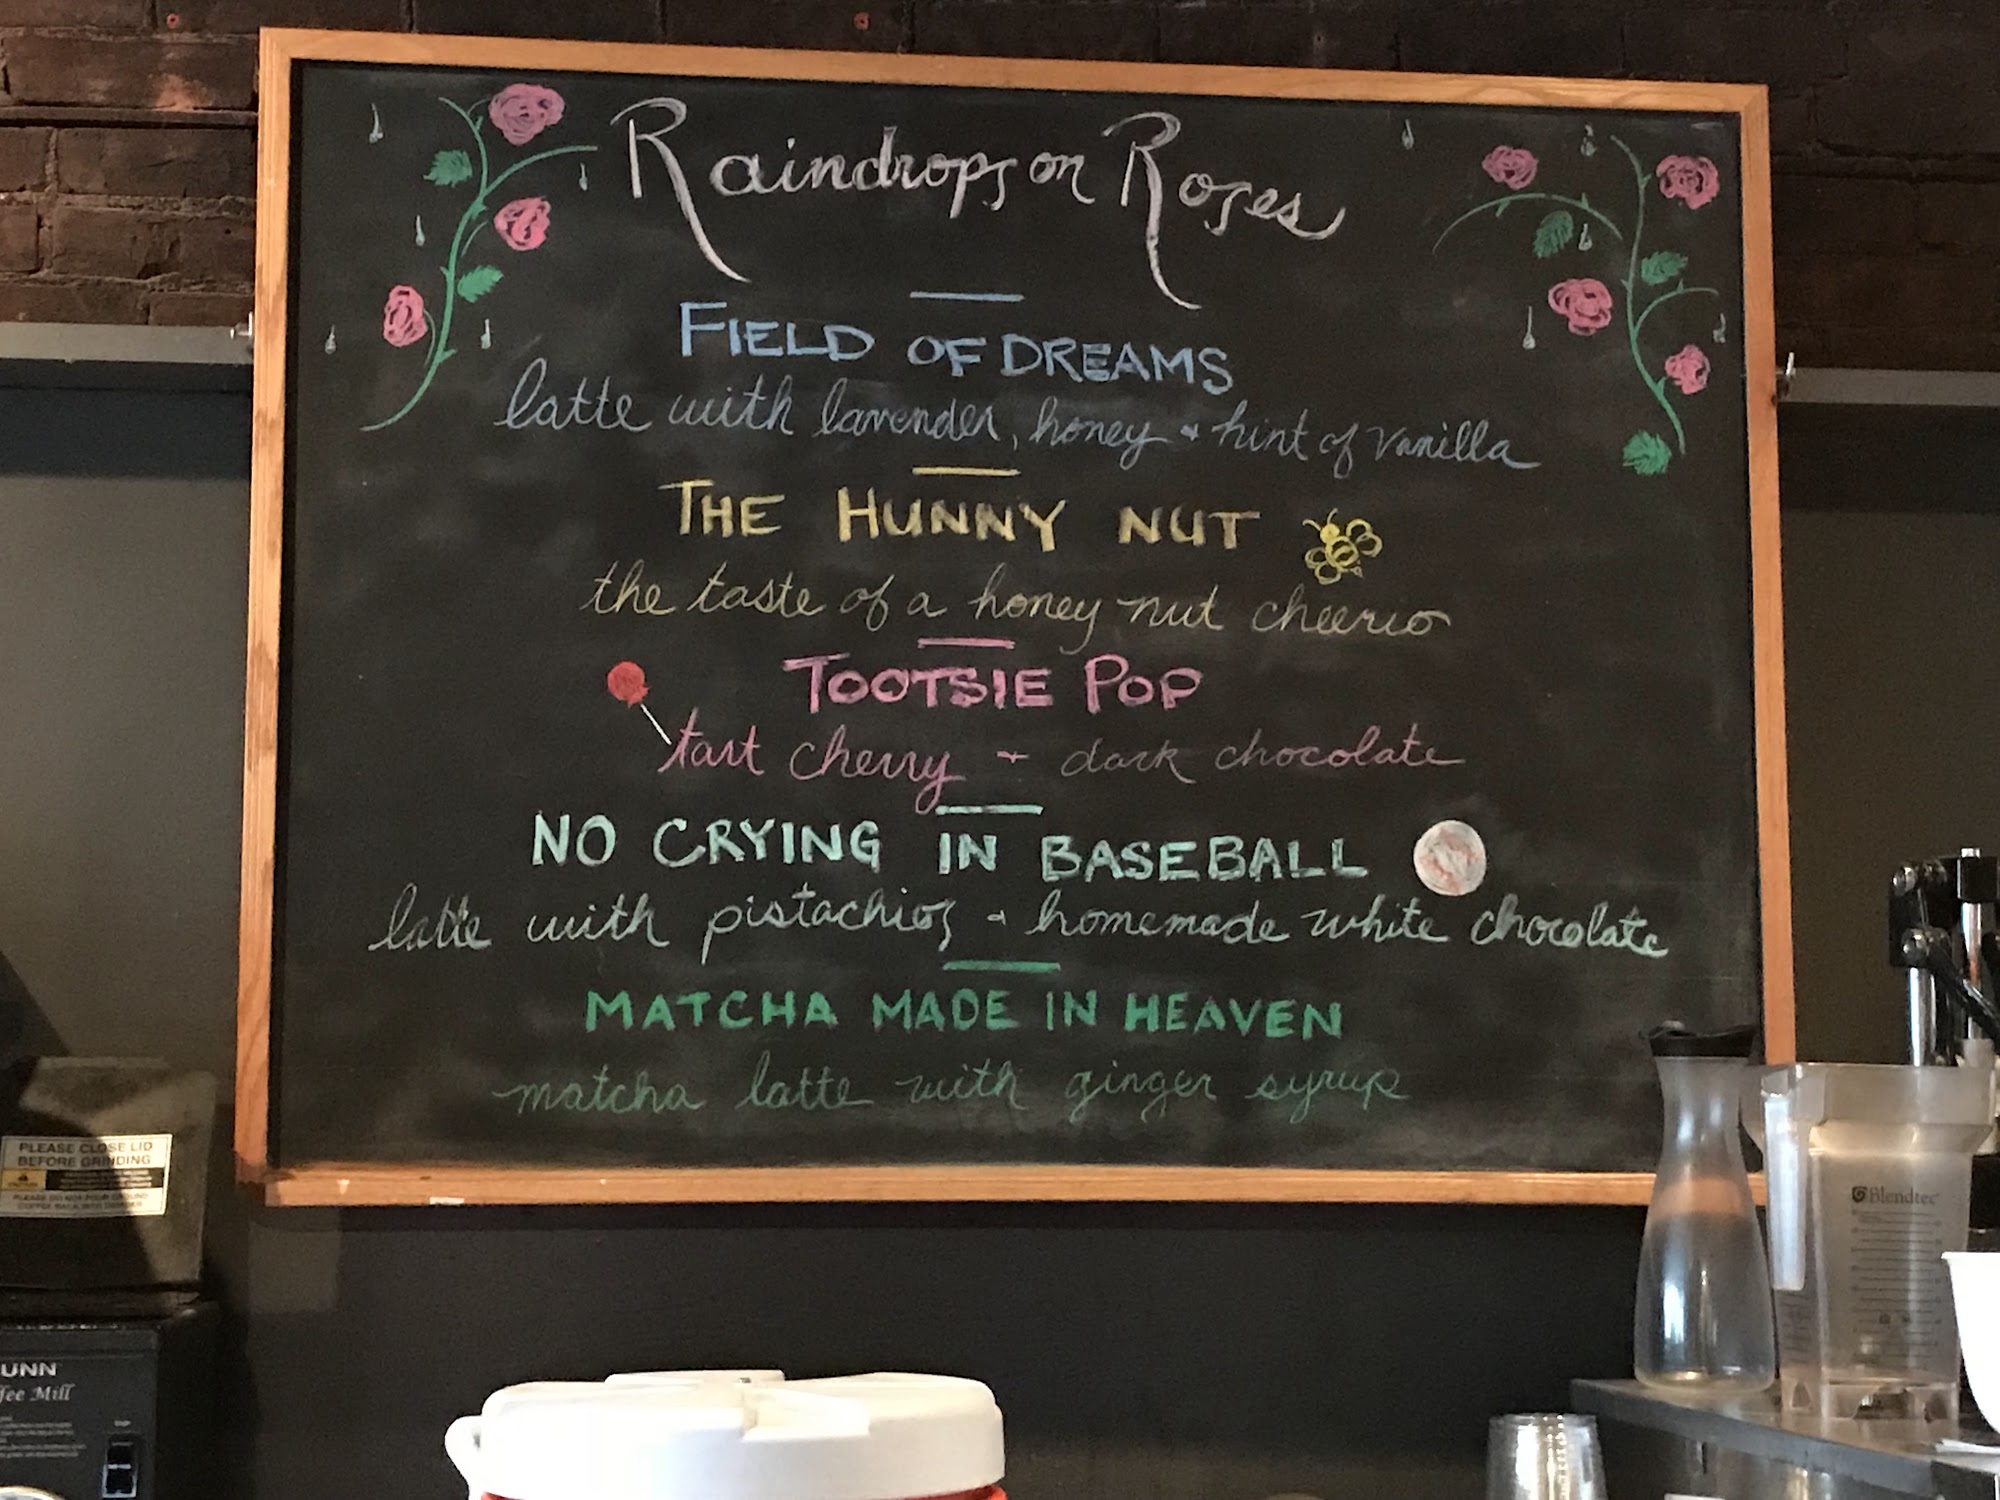 Raindrops on Roses
FIELD OF DREAMS
latte with lavender, honey + hint of vanilla
THE HUNNY NUT
the taste of a honey nut cheerio
TOOTSIE POP
tart cherry + dark chocolate
NO CRYING IN BASEBALL
latte with pistachios + homemade white chocolate
MATCHA MADE IN HEAVEN
matcha latte with ginger syrup
PLEASE CLOSE LID
BEFORE GRINDING
CAUTION
PLEASE DO NOT POUR GROUND
Blendtec
UNN
fee Mill